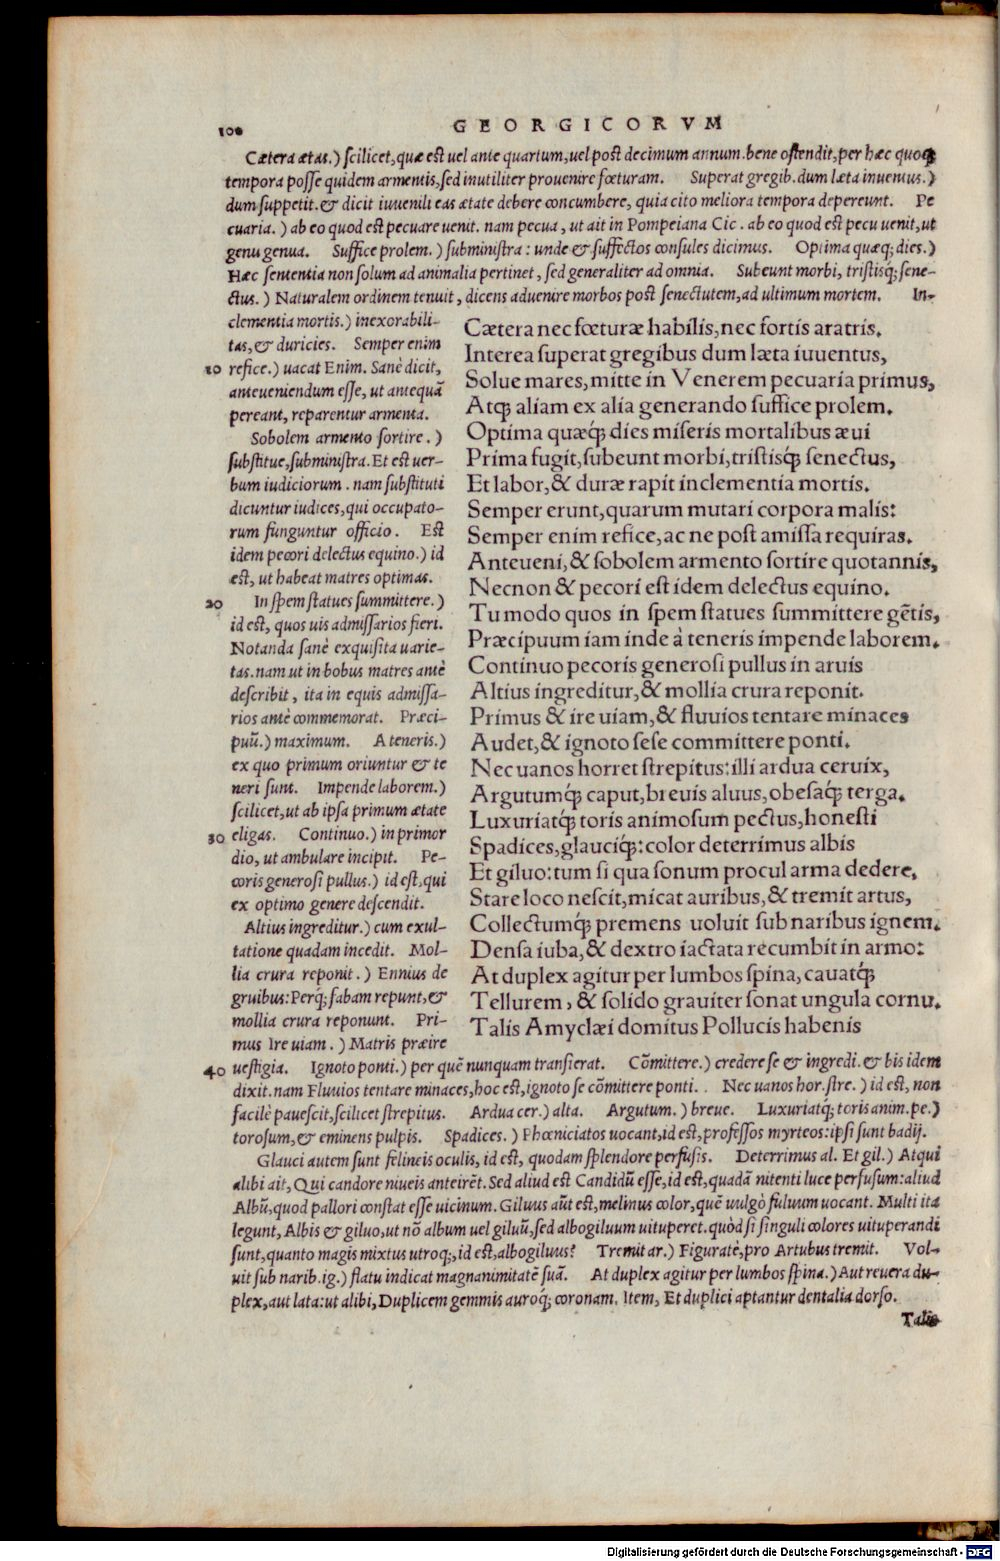 100
GEORGICORVM
Cætera ætas.) scilicet, quæ est uel ante quartum, uel post decimum annum. bene ostendit, per hæc quoq;
tempora posse quidem armentis, sed inutiliter prouenire fœturam. Superat gregib. dum læta iuuentus.)
dum suppetit. & dicit iuuenili eas ætate debere concumbere, quia cito meliora tempora depereunt. Pe
cuaria. ) ab eo quod est pecuare uenit. nam pecua, ut ait in Pompeiana Cic. ab eo quod est pecu uenit, ut
genu genua. Suffice prolem. ) subministra: unde & suffectos consules dicimus. Optima quæq; dies.)
Hæc sententia non solum ad animalia pertinet, sed generaliter ad omnia. Subeunt morbi, tristisq; sene-
ctus. ) Naturalem ordinem tenuit, dicens aduenire morbos post senectutem, ad ultimum mortem. In-
clementia mortis.) inexorabili-
tas, & duricies. Semper enim
10 refice.) uacat Enim. Sanè dicit,
anteueniendum esse, ut antequā
pereant, reparentur armenta.
Sobolem armento sortire. )
substitue, subministra. Et est uer-
bum iudiciorum. nam substituti
dicuntur iudices, qui occupato-
rum funguntur officio. Est
idem pecori delectus equino.) id
est, ut habeat matres optimas.
20 In spem statues summittere.)
id est, quos uis admissarios fieri.
Notanda sanè exquisita uarie-
tas. nam ut in bobus matres antè
describit, ita in equis admissa-
rios antè commemorat. Præci-
puū.) maximum. A teneris.)
ex quo primum oriuntur & te
neri sunt. Impende laborem.)
scilicet, ut ab ipsa primum ætate
30 eligas. Continuo.) in primor
dio, ut ambulare incipit. Pe-
coris generosi pullus.) id est, qui
ex optimo genere descendit.
Altius ingreditur.) cum exul-
tatione quadam incedit. Mol-
lia crura reponit. ) Ennius de
gruibus: Perq; fabam repunt, &
mollia crura reponunt. Pri-
mus Ire uiam. ) Matris præire
Cætera nec fœturæ habilis, nec fortis aratris.
Interea superat gregibus dum læta iuuentus,
Solue mares, mitte in Venerem pecuaria primus,
Atq; aliam ex alia generando suffice prolem.
Optima quæq; dies miseris mortalibus æui
Prima fugit, subeunt morbi, tristisq; senectus,
Et labor, & duræ rapit inclementia mortis.
Semper erunt, quarum mutari corpora malis:
Semper enim refice, ac ne post amissa requiras.
Anteueni, & sobolem armento sortire quotannis,
Necnon & pecori est idem delectus equino.
Tu modo quos in spem statues summittere gētis,
Præcipuum iam inde à teneris impende laborem.
Continuo pecoris generosi pullus in aruis
Altius ingreditur, & mollia crura reponit.
Primus & ire uiam, & fluuios tentare minaces
Audet, & ignoto sese committere ponti.
Nec uanos horret strepitus: illi ardua ceruix,
Argutumq; caput, breuis aluus, obesaq; terga.
Luxuriatq; toris animosum pectus, honesti
Spadices, glauciq;: color deterrimus albis
Et giluo: tum si qua sonum procul arma dedere,
Stare loco nescit, micat auribus, & tremit artus,
Collectumq; premens uoluit sub naribus ignem.
Densa iuba, & dextro iactata recumbit in armo:
At duplex agitur per lumbos spina, cauatq;
Tellurem, & solido grauiter sonat ungula cornu.
Talis Amyclæi domitus Pollucis habenis
40 uestigia. Ignoto ponti.) per quē nunquam transierat. Cōmittere.) credere se & ingredi. & bis idem
dixit. nam Fluuios tentare minaces, hoc est, ignoto se cōmittere ponti. . Nec uanos hor. stre. ) id est, non
facilè pauescit, scilicet strepitus. Ardua cer.) alta. Argutum. ) breue. Luxuriatq; toris anim. pe.)
torosum, & eminens pulpis. Spadices. ) Phœniciatos uocant, id est, professos myrteos: ipsi sunt badij.
Glauci autem sunt felineis oculis, id est, quodam splendore perfusis. Deterrimus al. Et gil.) Atqui
alibi ait, Qui candore niueis anteirēt. Sed aliud est Candidū esse, id est, quadā nitenti luce perfusum: aliud
Albū, quod pallori constat esse uicinum. Giluus aūt est, melinus color, quē uulgò fuluum uocant. Multi ita
legunt, Albis & giluo, ut nō album uel giluū, sed albogiluum uituperet. quòd si singuli colores uituperandi
sunt, quanto magis mixtus utroq;, id est, albogiluus? Tremit ar.) Figuratè, pro Artubus tremit. Vol-
uit sub narib. ig.) flatu indicat magnanimitatē suā. At duplex agitur per lumbos spina.) Aut reuera du-
plex, aut lata: ut alibi, Duplicem gemmis auroq; coronam. Item, Et duplici aptantur dentalia dorso.
Talis
Digitalisierung gefördert durch die Deutsche Forschungsgemeinschaft - DFG